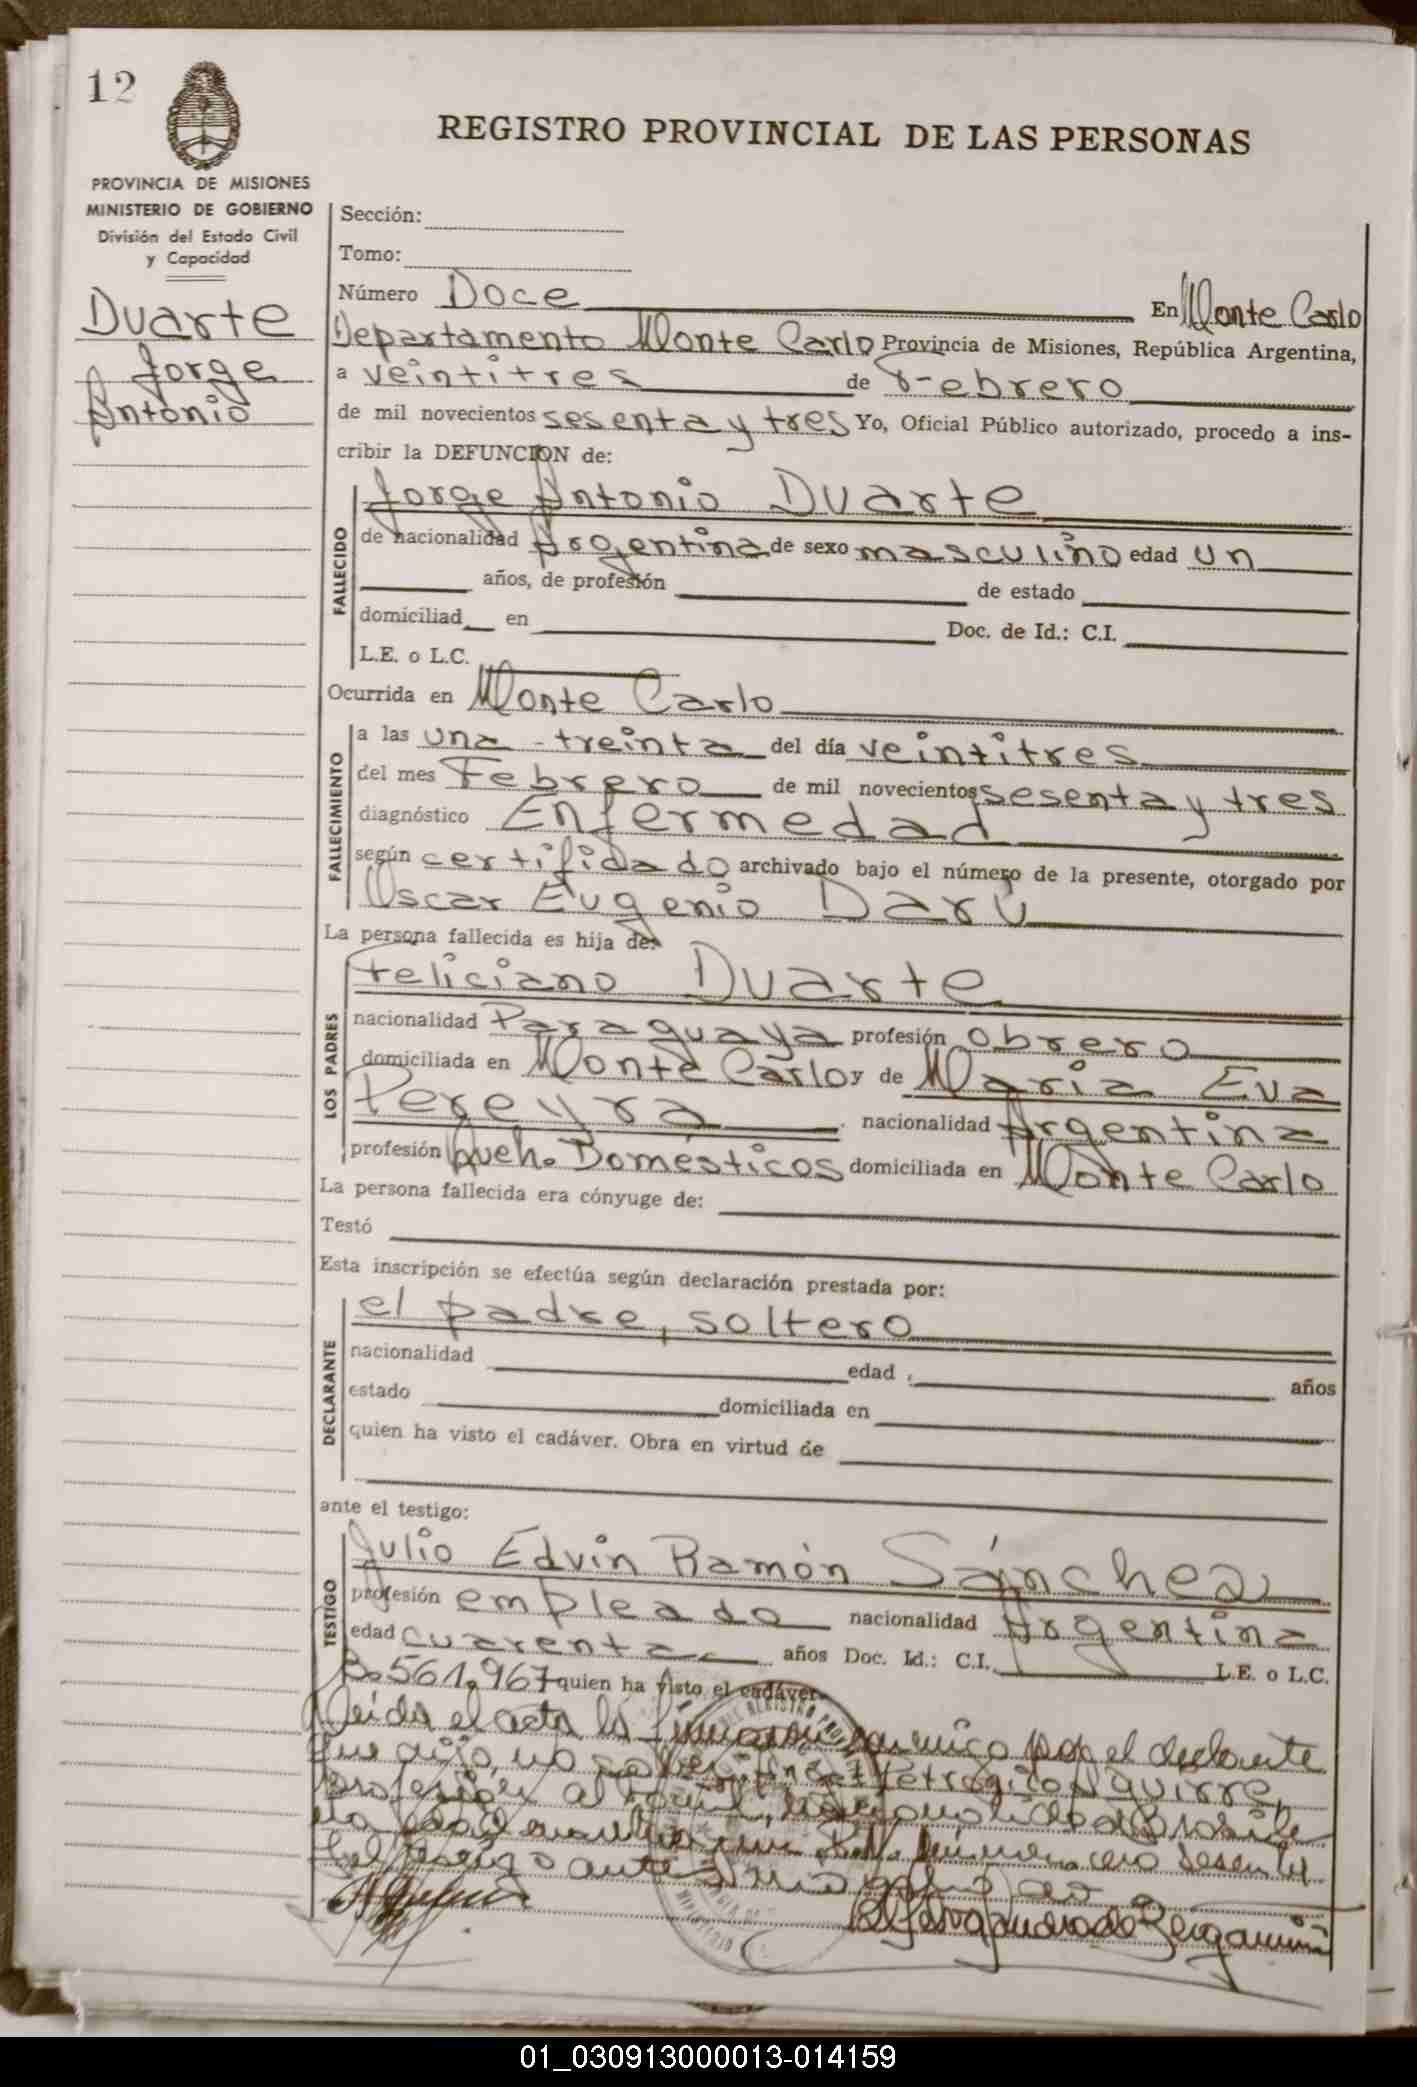 12
REGISTRO PROVINCIAL DE LAS PERSONAS
PROVINCIA DE MISIONES
MINISTERIO DE GOBIERNO
División del Estado Civil
y Capacidad
Duarte
Jorge
Antonio
Sección:
Tomo:
Número Doce En Monte Carlo
Departamento Monte Carlo Provincia de Misiones, República Argentina,
a veintitres de Febrero
de mil novecientos sesenta y tres Yo, Oficial Público autorizado, procedo a ins-
cribir la DEFUNCION de:
FALLECIDO
Jorge Antonio Duarte
de nacionalidad Argentina de sexo masculino edad un
años, de profesión de estado
domiciliad en Doc. de Id.: C.I.
L.E. o L.C.
Ocurrida en Monte Carlo
FALLECIMIENTO
a las una treinta del día veintitres
del mes Febrero de mil novecientos sesenta y tres
diagnóstico Enfermedad
según certifidado archivado bajo el número de la presente, otorgado por
Oscar Eugenio Darú
La persona fallecida es hija de:
LOS PADRES
Feliciano Duarte
nacionalidad Paraguaya profesión obrero
domiciliada en Monte Carlo y de Maria Eva
Pereyra nacionalidad Argentina
profesión Queh. Domésticos domiciliada en Monte Carlo
La persona fallecida era cónyuge de:
Testó
Esta inscripción se efectúa según declaración prestada por:
DECLARANTE
el padre, soltero
nacionalidad edad , años
estado domiciliada en
quien ha visto el cadáver. Obra en virtud de
ante el testigo:
TESTIGO
Julio Edvin Ramón Sánchez
profesión empleado nacionalidad Argentina
edad cuarenta años Doc. Id.: C.I. L.E. o L.C.
561.967 quien ha visto el cadáver.
Leida el acta la conmigo por el
que dijo no saber Aguirre,
profesión
ante
01_030913000013-014159